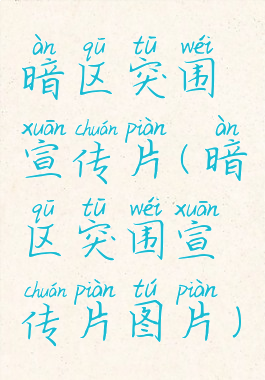 àn qū tū wéi
暗区突围
xuān chuán piàn àn
宣传片(暗
qū tū wéi xuān
区突围宣
chuán piàn tú piàn
传片图片)